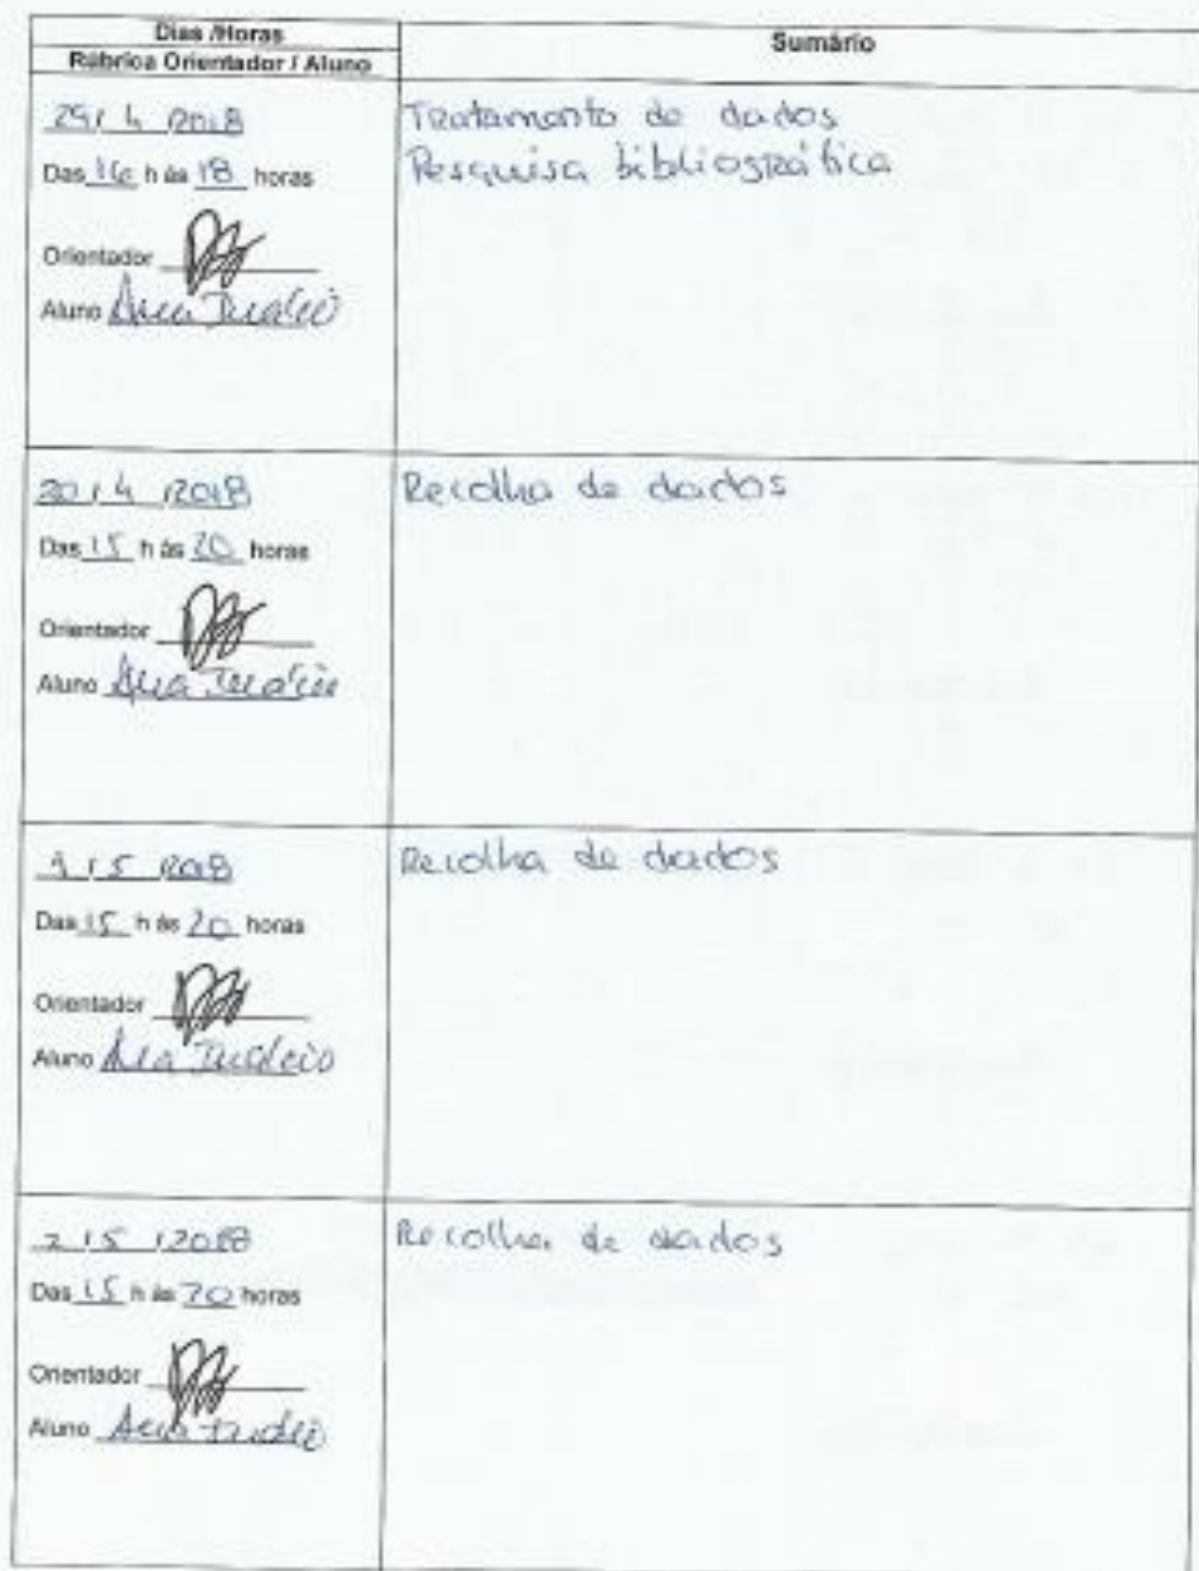 Dias /Horas
Rúbrica Orientador / Aluno
Sumário
29 / 4 / 2018
Das 16 h às 18 horas
Orientador
Aluno Ana
Tratamento de dados
Pesquisa bibliográfica
30 / 4 / 2018
Das 15 h às 20 horas
Orientador
Aluno Ana
Recolha de dados
1 / 5 / 2018
Das 15 h às 20 horas
Orientador
Aluno Ana
Recolha de dados
2 / 5 / 2018
Das 15 h às 20 horas
Orientador
Aluno Ana
Recolha de dados